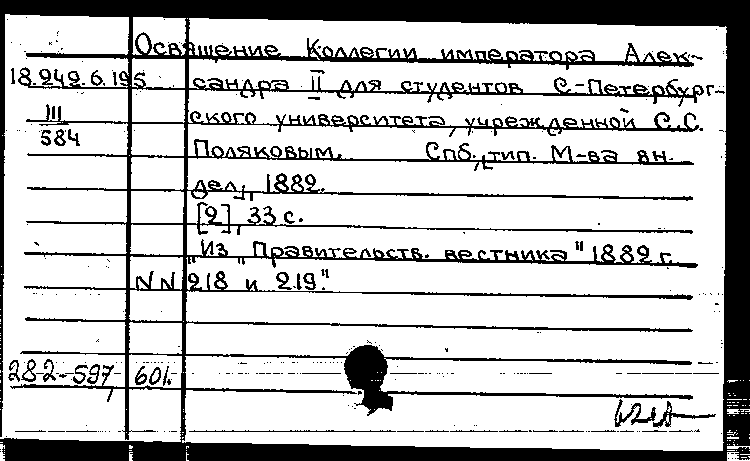 Освящение Коллегии императора Алек-
18.242.6.195 сандра II для студентов С-Петербург-
III ского университета, учрежденной С.С.
584 Поляковым. Спб., тип. М-ва вн.
дел, 1882.
[2], 33 с.
"Из "Правительств. вестника" 1882 г.
NN 218 и 219."
282-597 601.